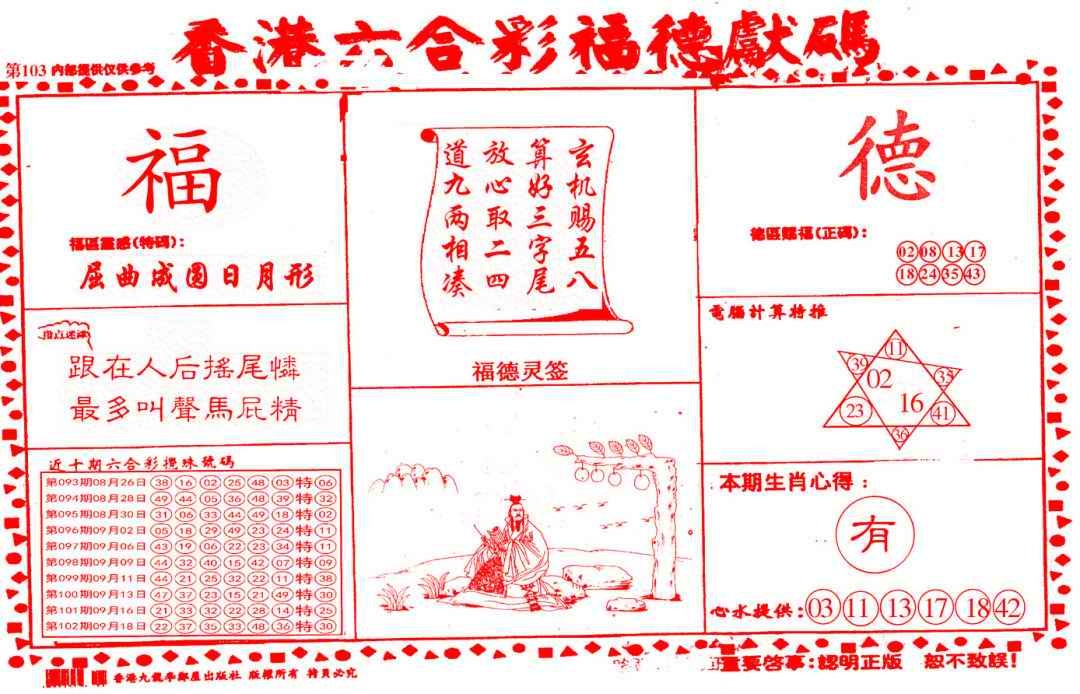 香港六合彩福德獻碼
第103 内部提供仅供参考
福
福區靈感(特碼):
屈曲成圆日月形
跟在人后摇尾憐
最多叫聲馬屁精
近十期六合彩攪珠號碼
第093期08月26日 38 16 02 25 48 03 特 06
第094期08月28日 49 44 05 36 48 39 特 32
第095期08月30日 31 06 33 44 49 18 特 02
第096期09月02日 05 18 29 49 23 24 特 11
第097期09月06日 43 19 06 22 23 34 特 11
第098期09月09日 44 32 40 15 42 07 特 09
第099期09月11日 44 21 25 32 22 11 特 38
第100期09月13日 47 37 23 15 21 49 特 30
第101期09月16日 21 33 32 22 28 14 特 25
第102期09月18日 22 37 35 33 48 36 特 30
玄机赐五八
算好三字尾
放心取二四
道九两相凑
福德灵签
德
德區賜福(正碼):
02 08 13 17
18 24 35 43
電腦計算特推
11
39 02 33
23 16 41
36
本期生肖心得:
有
心水提供: 03 11 13 17 18 42
香港九龍季鄰屋出版社 版權所有 翻員必究
重要啓事:認明正版 恕不致誤!